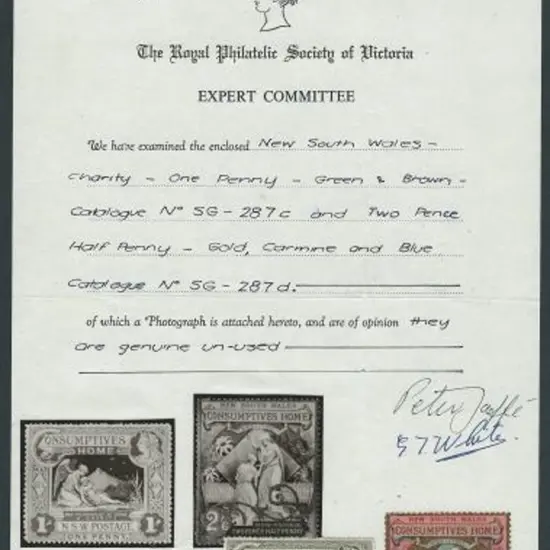 The Royal Philatelic Society of Victoria
EXPERT COMMITTEE
We have examined the enclosed New South Wales -
Charity - One Penny - Green & Brown -
Catalogue No SG - 287c and Two Pence
Half Penny - Gold, Carmine and Blue
Catalogue No SG - 287d.
of which a Photograph is attached hereto, and are of opinion they
are genuine un-used
Peter Jaffé
E T White.
CONSUMPTIVES
HOME
1/-
N.S.W. POSTAGE
ONE PENNY
NEW SOUTH WALES
CONSUMPTIVES HOME
2/6
TWOPENCE HALFPENNY
NEW SOUTH WALES
CONSUMPTIVES HOME